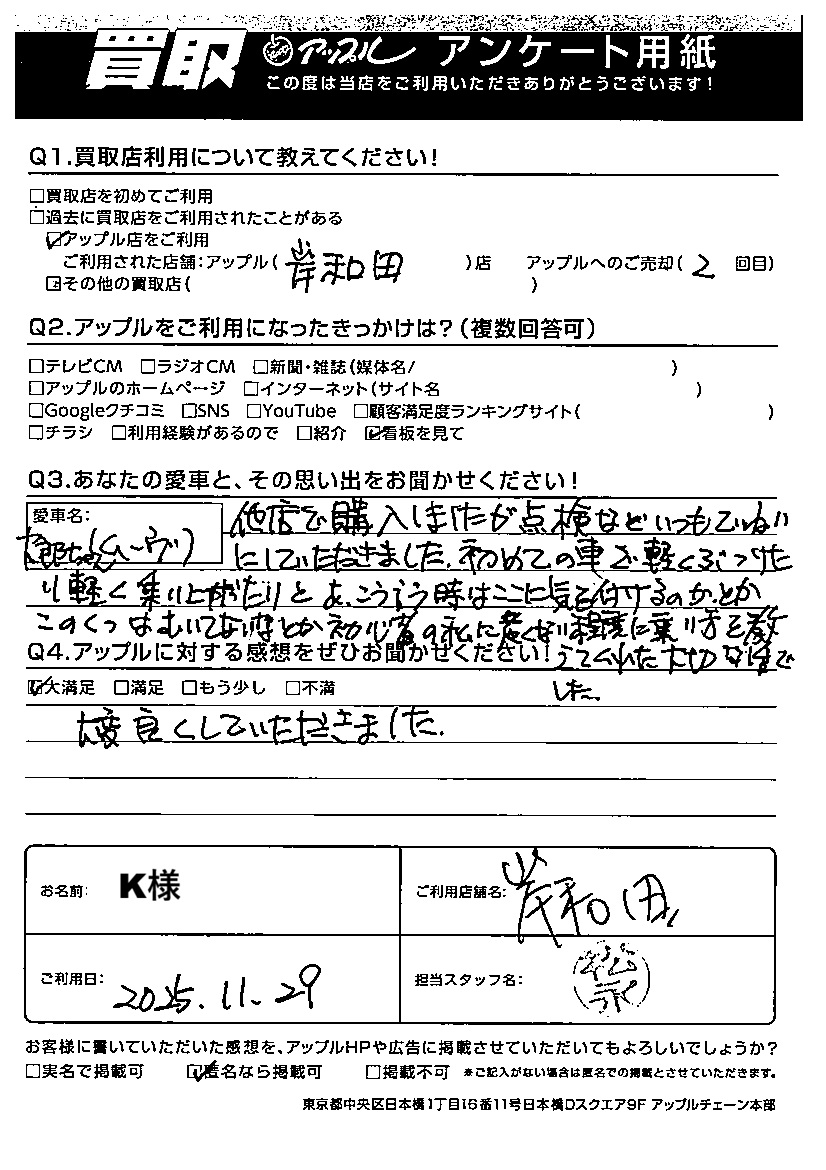 買取 アップル アンケート用紙
この度は当店をご利用いただきありがとうございます!
Q1.買取店利用について教えてください!
□買取店を初めてご利用
□過去に買取店をご利用されたことがある
☑アップル店をご利用
ご利用された店舗:アップル( 岸和田 )店 アップルへのご売却( 2 回目)
□その他の買取店( )
Q2.アップルをご利用になったきっかけは?(複数回答可)
□テレビCM □ラジオCM □新聞・雑誌(媒体名/ )
□アップルのホームページ □インターネット(サイト名 )
□Googleクチコミ □SNS □YouTube □顧客満足度ランキングサイト( )
□チラシ □利用経験があるので □紹介 ☑看板を見て
Q3.あなたの愛車と、その思い出をお聞かせください!
愛車名: 他店で購入しましたが点検などいつもていねい
(ムーヴ) にしていただきました。初めての車で軽くぶつけた
り軽く乗り上がたりと あ、こういう時はここに気を付けするのか、とか
このくつはむいてないなとか初心者の私に 程度に乗り方を教
Q4.アップルに対する感想をぜひお聞かせください! えてくれた大切な車で
☑大満足 □満足 □もう少し □不満 した。
大変良くしていただきました。
お名前: K様 ご利用店舗名: 岸和田
ご利用日: 2025.11.29 担当スタッフ名: 松永
お客様に書いていただいた感想を、アップルHPや広告に掲載させていただいてもよろしいでしょうか?
□実名で掲載可 ☑匿名なら掲載可 □掲載不可 ※ご記入がない場合は匿名での掲載とさせていただきます。
東京都中央区日本橋1丁目16番11号日本橋Dスクエア9F アップルチェーン本部